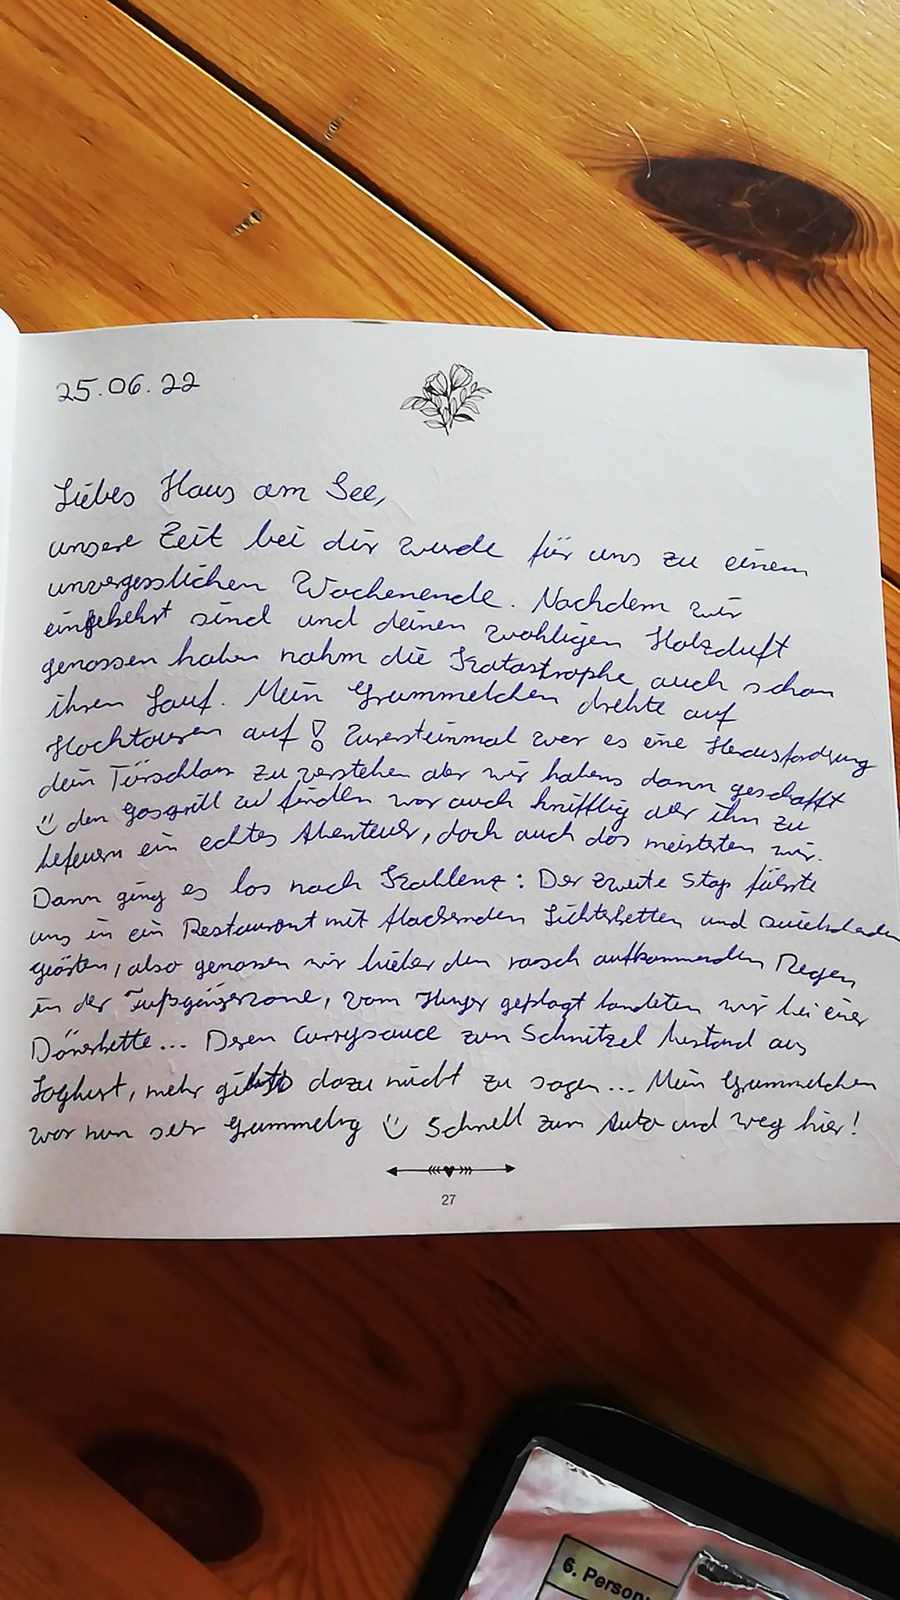 25.06.22
Liebes Haus am See,
unsere Zeit bei dir wurde für uns zu einem
unvergesslichen Wochenende. Nachdem wir
eingekehrt sind und deinen wohligen Holzduft
genossen haben nahm die Katastrophe auch schon
ihren Lauf. Mein Grummelchen drehte auf
Hochtouren auf! Zuersteinmal war es eine Herausfordrung
dein Türschloss zu verstehen aber wir habens dann geschafft
☺ den Gasgrill zu finden war auch knifflig aber ihn zu
befeuern ein echtes Abenteuer, doch auch das meisterten wir.
Dann ging es los nach Koblenz: Der zweite Stop führte
uns in ein Restaurant mit flackernden Lichterketten und
Gästen, also genossen wir lieber den rasch aufkommenden Regen
in der Fußgängerzone, vom Hunger geplagt landeten wir bei einer
Dönerbette... Deren Currysauce zum Schnitzel bestand aus
Joghurt, mehr gibts dazu nicht zu sagen... Mein Grummelchen
war nun ser grummelig ☺ Schnell zum Auto und weg hier!
27
6. Person